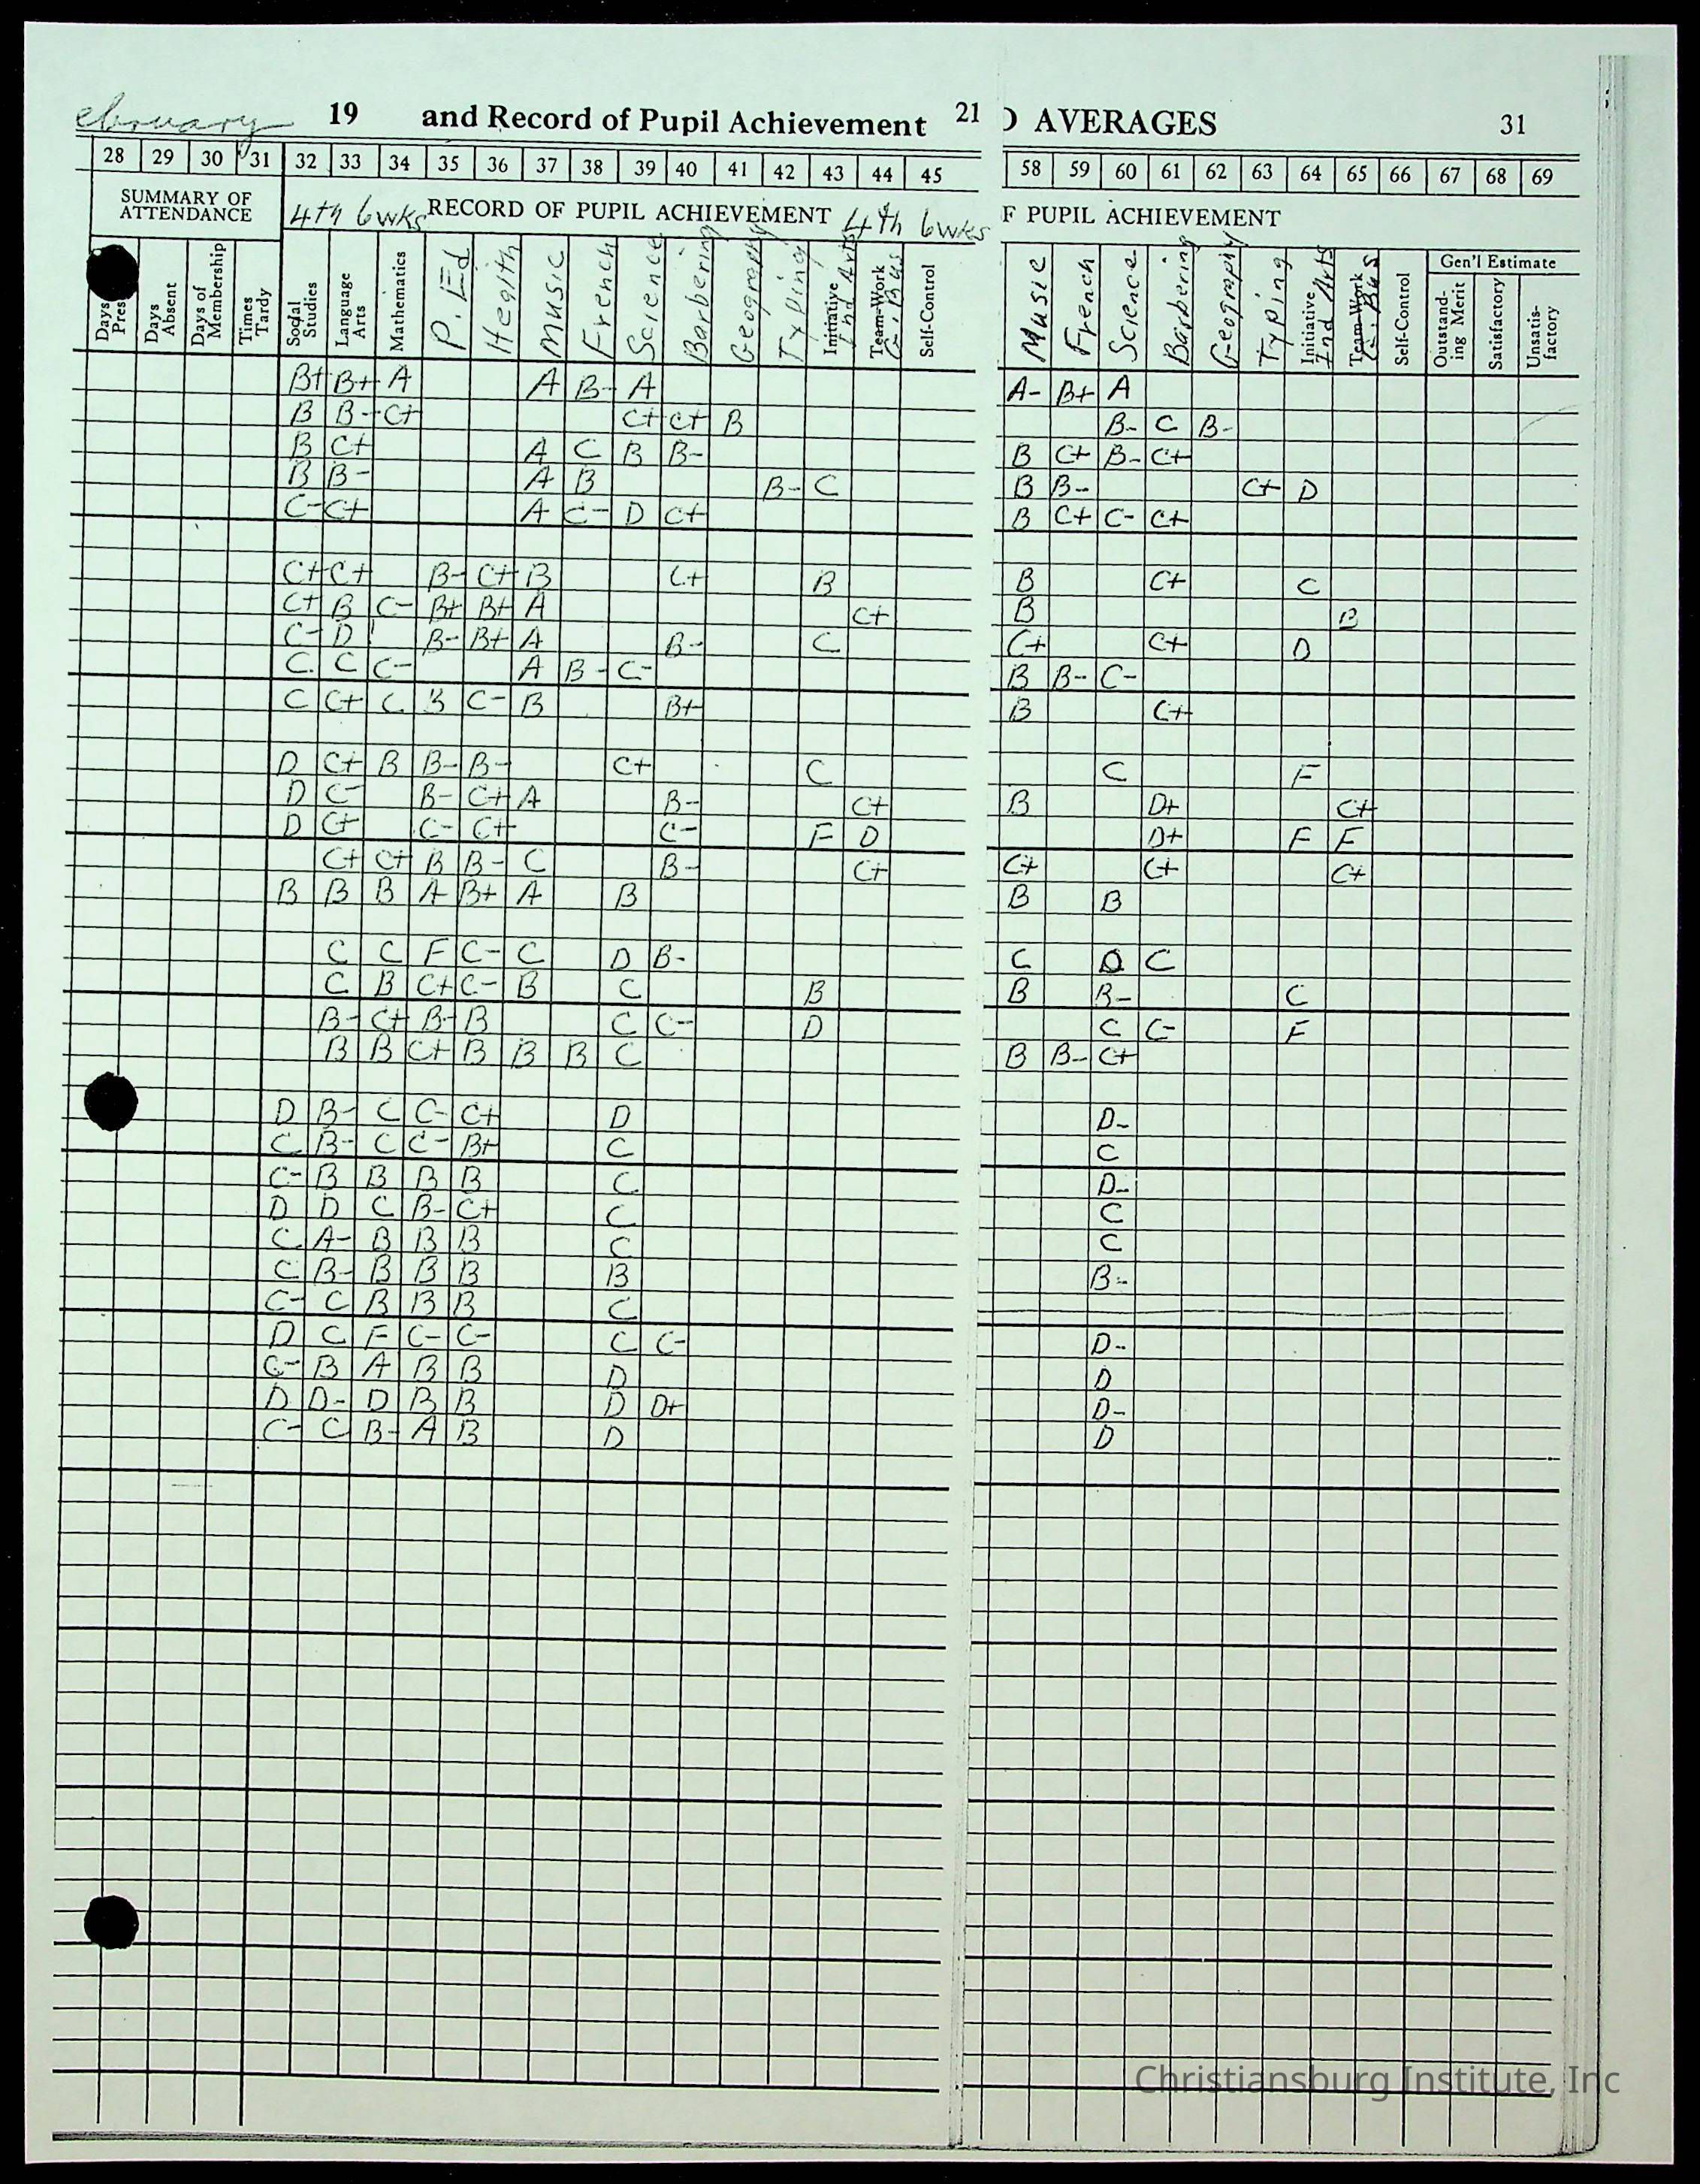 ebruary 19 and Record of Pupil Achievement 21 D AVERAGES 31
28 29 30 31 32 33 34 35 36 37 38 39 40 41 42 43 44 45 58 59 60 61 62 63 64 65 66 67 68 69
SUMMARY OF ATTENDANCE 4th 6wks RECORD OF PUPIL ACHIEVEMENT 4th 6wks F PUPIL ACHIEVEMENT
Days Pres Days Absent Days of Membership Times Tardy Social Studies Language Arts Mathematics P. Ed Health Music French Science Barbering Geography Typing Initiative Ind Arts Team-Work G. Bus Self-Control Music French Science Barbering Geography Typing Initiative Ind Arts Team-Work G. Bus Self-Control Gen'l Estimate Outstand-ing Merit Satisfactory Unsatis-factory
B+ B+ A A B- A A- B+ A
B B- C+ C+ C+ B B- C B-
B C+ A C B B- B C+ B- C+
B B- A B B- C B B- C+ D
C- C+ A C- D C+ B C+ C- C+
C+ C+ B- C+ B C+ B B C+ C
C+ B C- B+ B+ A C+ B B
C- D B- B+ A B- C C+ C+ D
C C C- A B- C- B B- C-
C C+ C B C- B B+ B C+
D C+ B B- B- C+ C C F
D C- B- C+ A B- C+ B D+ C+
D C+ C- C+ C- F D D+ F F
C+ C+ B B- C B- C+ C+ C+ C+
B B B A B+ A B B B
C C F C- C D B- C D C
C B C+ C- B C B B B- C
B- C+ B- B C C- D C C- F
B B C+ B B B C B B- C+
D B- C C- C+ D D-
C B- C C- B+ C C
C- B B B B C D-
D D C B- C+ C C
C A- B B B C C
C B- B B B B B-
C- C B B B C
D C F C- C- C C- D-
C- B A B B D D
D D- D B B D D+ D-
C- C B- A B D D
Christiansburg Institute, Inc